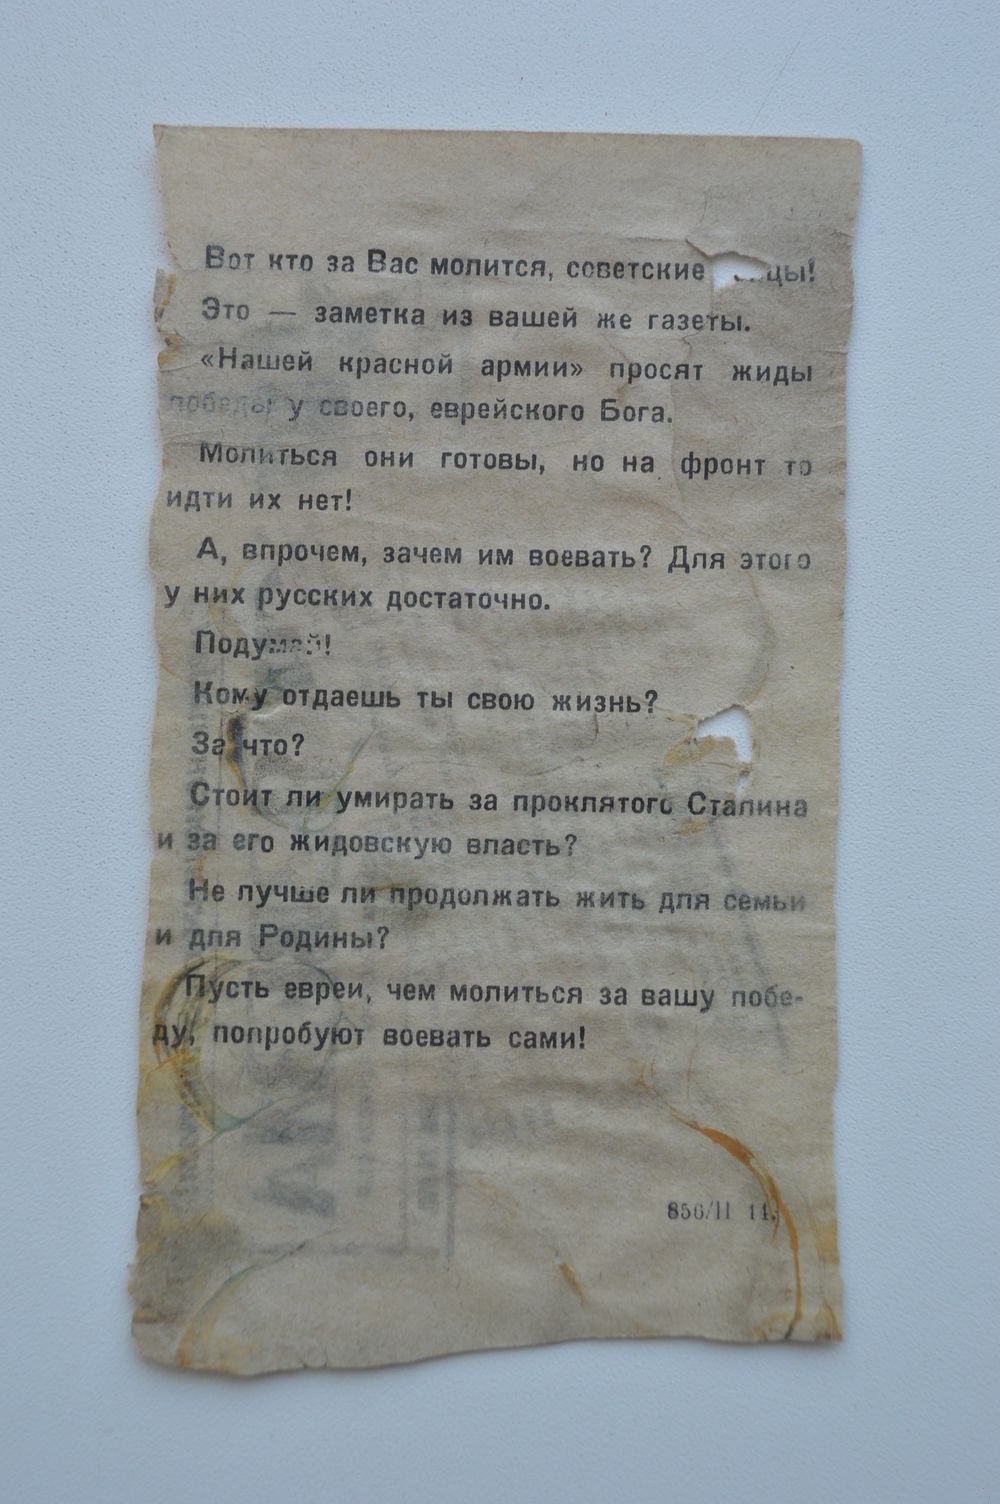 Вот кто за Вас молится, советские цы!
Это — заметка из вашей же газеты.
«Нашей красной армии» просят жиды
победы у своего, еврейского Бога.
Молиться они готовы, но на фронт то
идти их нет!
А, впрочем, зачем им воевать? Для этого
у них русских достаточно.
Подумай!
Кому отдаешь ты свою жизнь?
За что?
Стоит ли умирать за проклятого Сталина
и за его жидовскую власть?
Не лучше ли продолжать жить для семьи
и для Родины?
Пусть евреи, чем молиться за вашу побе-
ду, попробуют воевать сами!